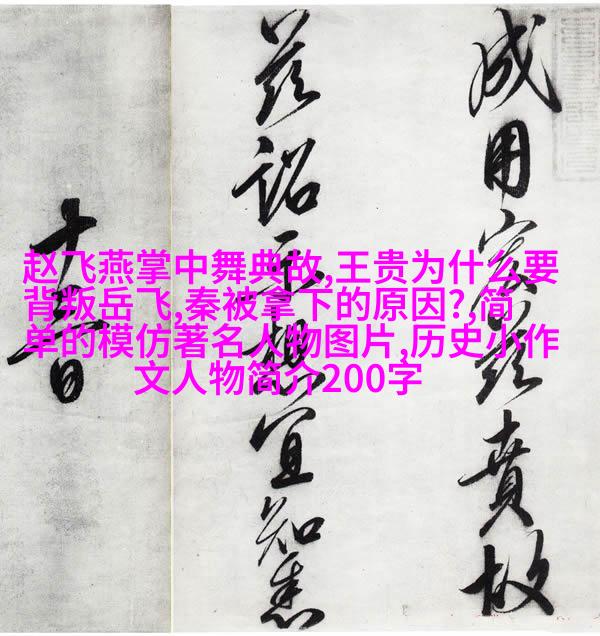 赵飞燕掌中舞典故,王贵为什么要
背叛岳飞,秦被拿下的原因?,简
单的模仿著名人物图片,历史小作
文人物简介200字
成用宏兹賁故
兹詔示想宜知悉